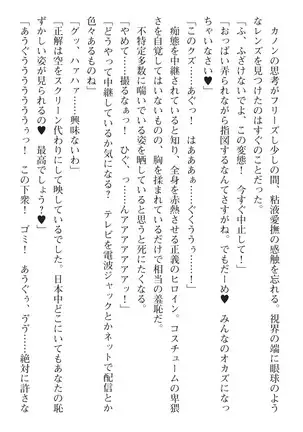 カノンの思考がフリーズし少しの間、粘液愛撫の感触を忘れる。視界の端に眼球のよう
なレンズを見つけたのはすぐのことだった。
「ふ、ふざけないでよ、この変態! 今すぐ中止して!」
「おっぱい弄られながら指図するなんてさすがね。でもだーめ♥ みんなのオカズになっ
ちゃいなさい♥」
「このクズ……あぐっ! はあああぁ……ぐくううぅ……!」
痴態を中継されていると知り、全身を赤熱させる正義のヒロイン。コスチュームの卑猥
さを自覚してはいないものの、胸を揉まれているだけで相当の羞恥だ。
不特定多数に喘いでいる姿を晒していると思うと死にたくなる。
「やめて……撮るなぁっ! ひぐ、っ……んアァアアアァッ!」
「どうやって中継しているか気になる? テレビを電波ジャックとかネットで配信とか
色々あるものね」
「グッ、ハァハァ……興味ないわ」
「正解は空をスクリーン代わりにして映しているでした。日本中どこにいてもあなたの恥
ずかしい姿が見られるの♥ 最高でしょう?♥」
「あうぐううううううぅっ! この下衆! ゴミ! あうぐぅ、ヴヴ……絶対に許さな